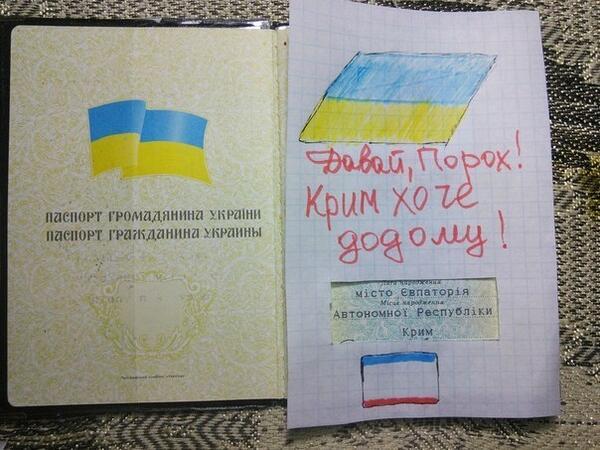 ПАСПОРТ ГРОМАДЯНИНА УКРАЇНИ
ПАСПОРТ ГРАЖДАНИНА УКРАИНЫ
Давай, Порох!
Крим хоче
додому!
Дата народження
місто Євпаторія
Місце народження
Автономної Республіки
Крим